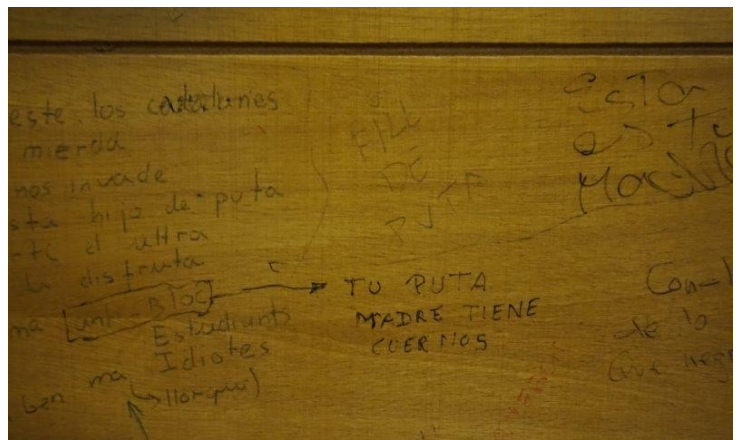 este. los catalunes
mierda
nos invade
sta hijo de puta
rti el ultra
la disfruta
ma [anti-BLOC]
Estudiants
Idiotes
ben ma
FILL
DE
PUTA
TU PUTA
MADRE TIENE
CUERNOS
Esta
es tu
Con-
de lo
que neg